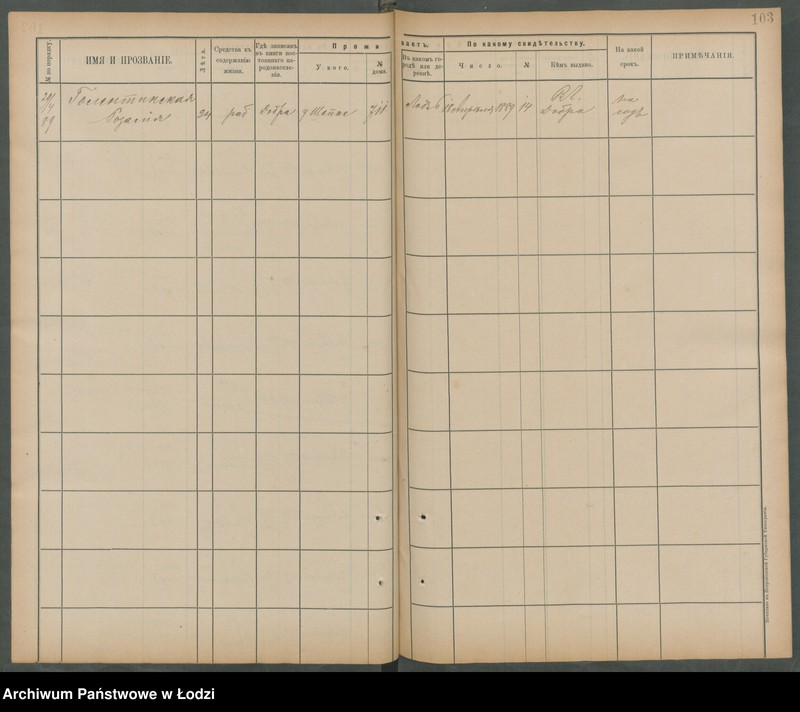 103
№ по порядку.
ИМЯ И ПРОЗВАНІЕ.
Лѣта.
Средства къ
содержанію
жизни.
Гдѣ записанъ
въ книги пос-
тояннаго на-
родонаселе-
нія.
Прожи
У кого.
№
дома.
ваетъ.
Въ какомъ го-
родѣ или де-
ревнѣ.
По какому свидѣтельству.
Число.
№
Кѣмъ выдано.
На какой
срокъ.
ПРИМѢЧАНІЯ.
29/4
89
Розалия
24
раб
Добра
у
Лодзь
Апреля 1889
14
Добра
на
годъ
Archiwum Państwowe w Łodzi